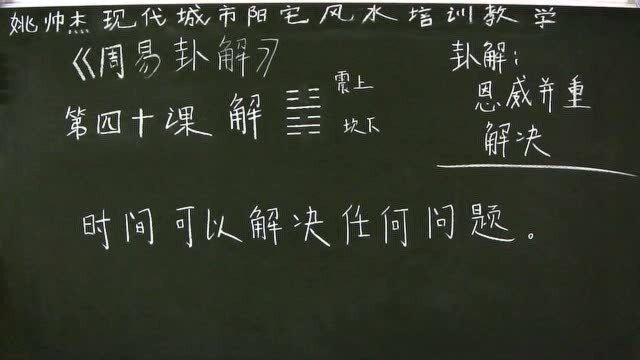 姚帅杰现代城市阳宅风水培训教学
《周易卦解》
第四十课 解 震上 坎下
卦解：
恩威并重
解决
时间可以解决任何问题。